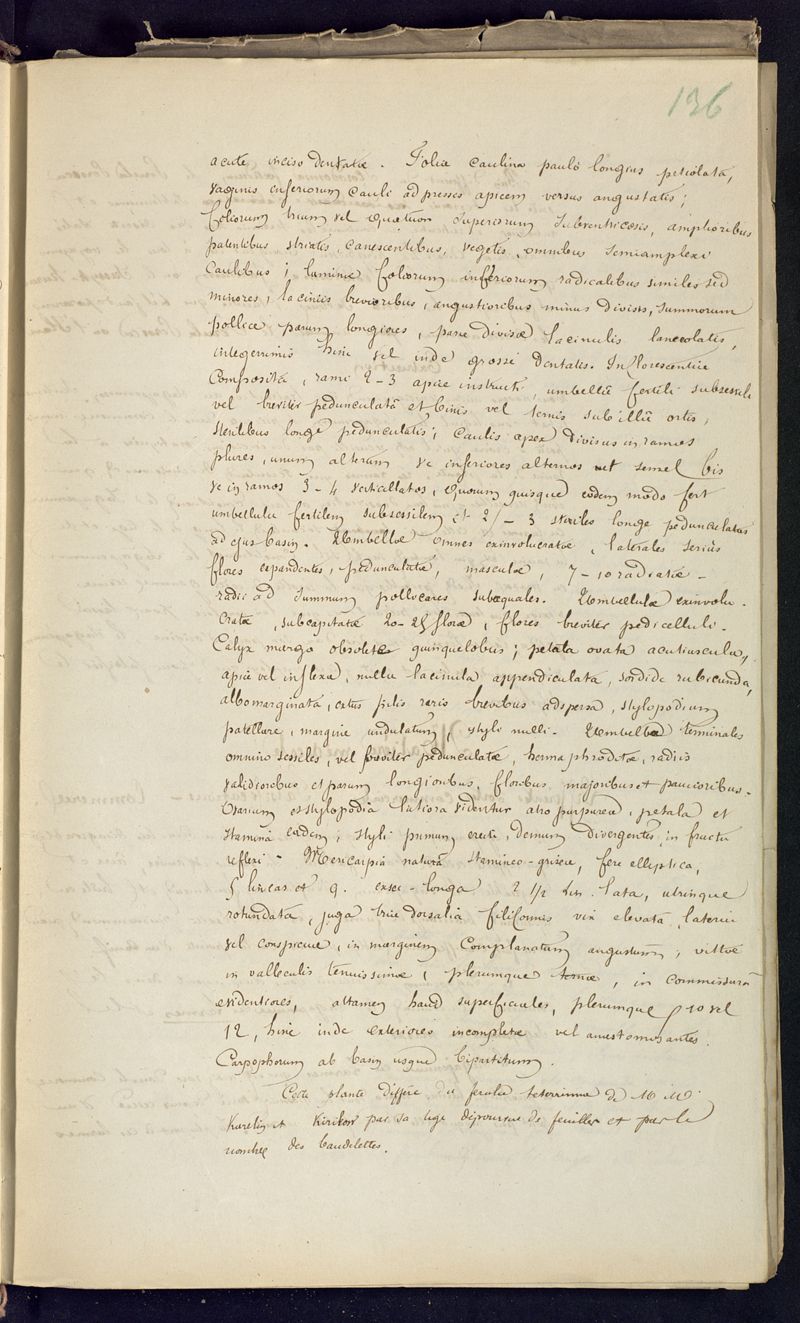 136
acute inciso dentatæ. Folia caulina paulo longius petiolata,
vaginis inferiorum cauli adpressis apicem versus angustatis;
foliorum trium vel quatuor superiorum subventricosis, amplioribus
patentibus striatis, canescentibus, vegetis, omnibus semiamplexi
caulibus; laminæ foliorum inferiorum radicalibus similes sed
minores, laciniis brevioribus, angustioribus minus divisis, summorum
pollice parum longiores, parce divisæ lacinulis lanceolatis,
integerrimis hinc vel inde grosse dentatis. Inflorescentia
composita, rami 2-3 apice instructi, umbellâ fertili subsessili
vel breviter pedunculatâ et binis vel ternis sub illâ ortis,
sterilibus longe pedunculatis; caulis apex divisus in ramos
plures, unum alterum ve inferiores alternos vel semel bis
ve in ramos 3-4 verticillatos, quorum quisque eodem modo fert
umbellula fertilem subsessilem et 2-3 steriles longe pedunculatas
ad ejus basin. Umbellæ omnes exinvolucratæ, laterales serius
flores expandentes, pedunculatæ, masculæ, 7-10 radiatæ-
radii ad summum pollicares subæquales. Umbellulæ exinvolu-
cratæ, subcapitatæ 20-25 floræ, flores breviter pedicellati.
Calyx margo obsolete quinquelobus; petala ovata acutiuscula,
apice vel inflexa, nulla lacinula appendiculata, sordide rubicunda,
albomarginata, extus pilis raris brevibus adspersa, stylopodium
patellare, margine undulatum, styli nulli. Umbellæ terminales
omnino sessiles, vel breviter pedunculatæ, hermaphroditæ, radiis
validioribus et parum longioribus, floribus majoribus et paucioribus.
Ovarium et stylopodia latiora videntur atro purpurea, petala et
stamina eadem; styli primum erecti, demum divergentes, in fructu
reflexi- Mericarpia natura stamineo-grisea, fere elliptica,
5 lineas et q. exsec-longa 2 1/2 lin. lata, utrinque
rotundata, juga tria dorsalia filiformes vix elevata, lateria
vel conspicue, in marginem complanatum angustum; vittæ
in valleculis tenuissimæ, plerumque ternæ, in commissurâ
evidentiores, attamen haud superficiales, plerumque 10 vel
12, hinc inde exteriores incompletæ vel anastomosantes.
Carpophorum ab basin usque bipartitum.
Cette plante diffère du ferula teterrima de M M.
Karelin et Kirilow par sa tige dépourvue de feuilles et par le
nombre des bandelettes.